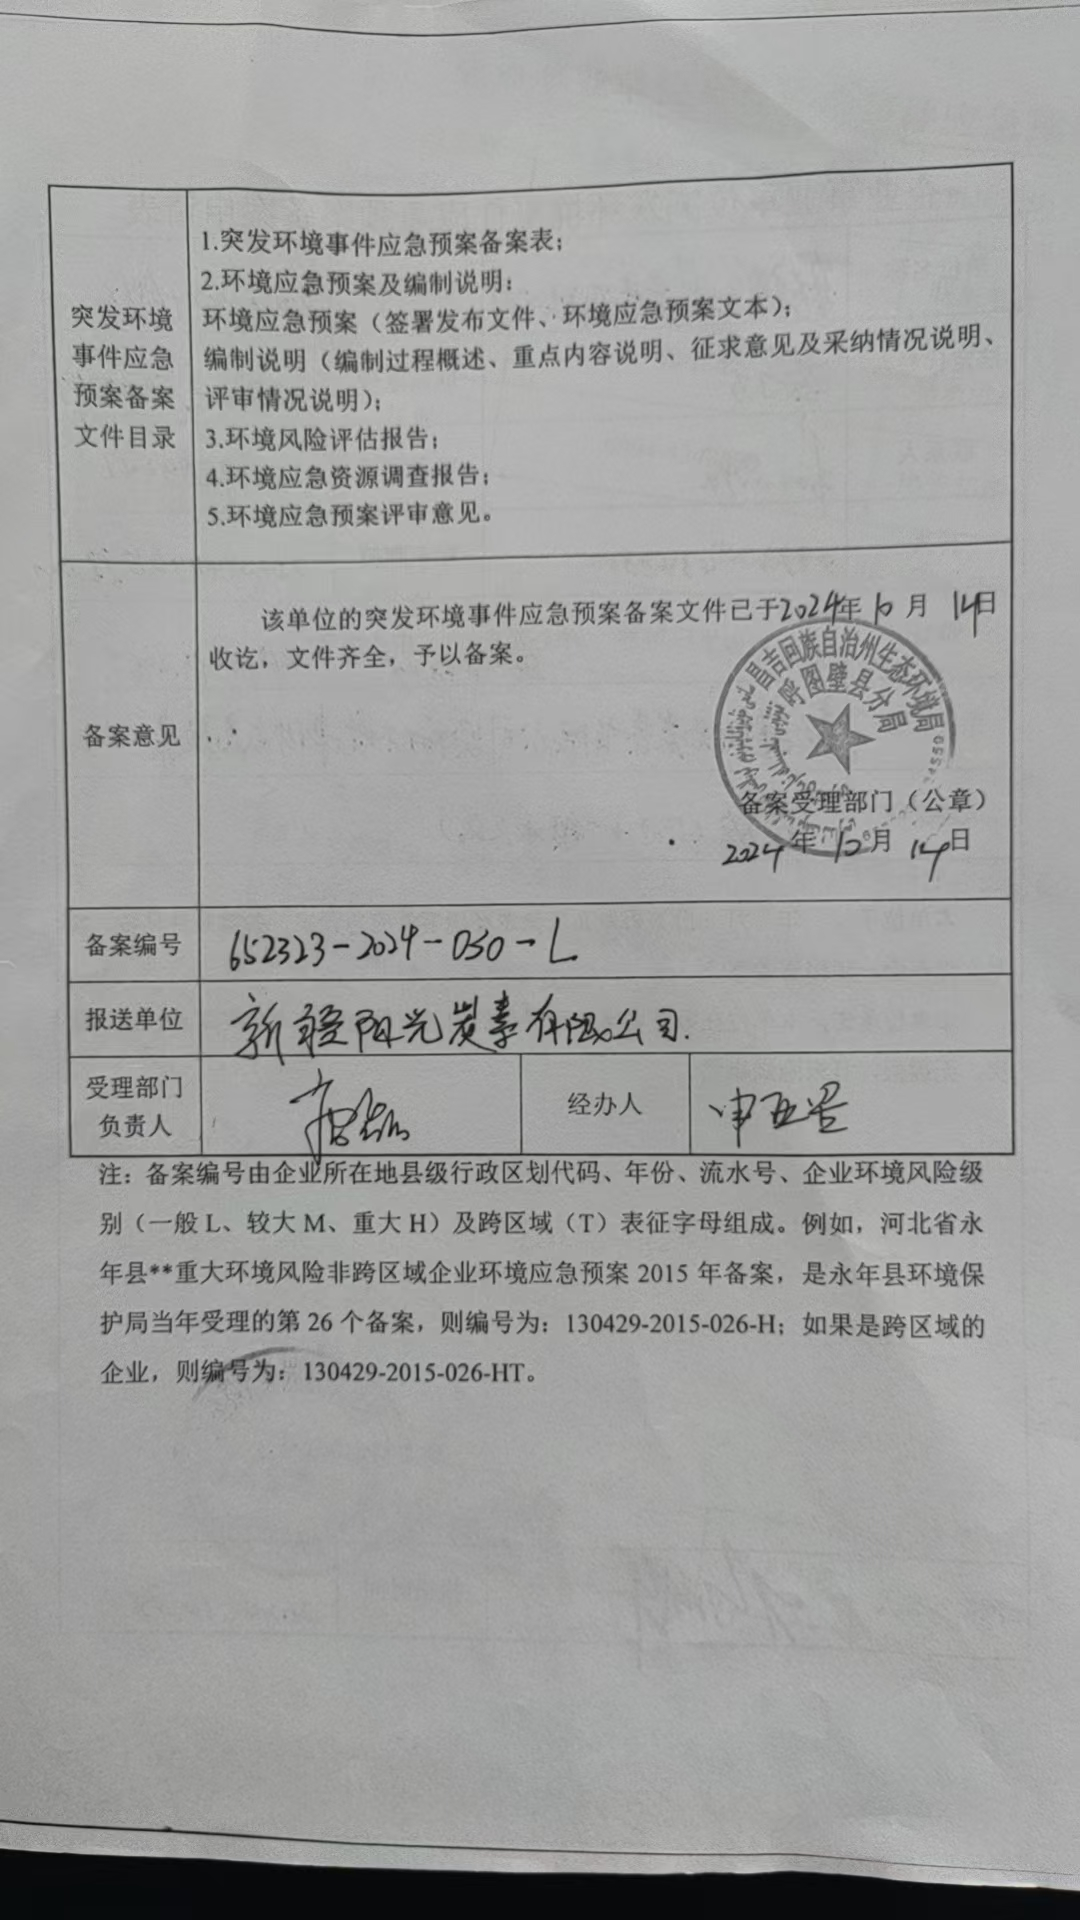 突发环境
事件应急
预案备案
文件目录
1.突发环境事件应急预案备案表；
2.环境应急预案及编制说明：
环境应急预案（签署发布文件、环境应急预案文本）；
编制说明（编制过程概述、重点内容说明、征求意见及采纳情况说明、
评审情况说明）；
3.环境风险评估报告；
4.环境应急资源调查报告；
5.环境应急预案评审意见。
备案意见
该单位的突发环境事件应急预案备案文件已于2024年10月14日
收讫，文件齐全，予以备案。
昌吉回族自治州生态环境局
呼图壁县分局
备案受理部门（公章）
2024年10月14日
备案编号
652323-2024-050-L
报送单位
新疆阳光炭素有限公司.
受理部门
负责人
经办人
注：备案编号由企业所在地县级行政区划代码、年份、流水号、企业环境风险级
别（一般 L、较大 M、重大 H）及跨区域（T）表征字母组成。例如，河北省永
年县**重大环境风险非跨区域企业环境应急预案 2015 年备案，是永年县环境保
护局当年受理的第 26 个备案，则编号为：130429-2015-026-H；如果是跨区域的
企业，则编号为：130429-2015-026-HT。